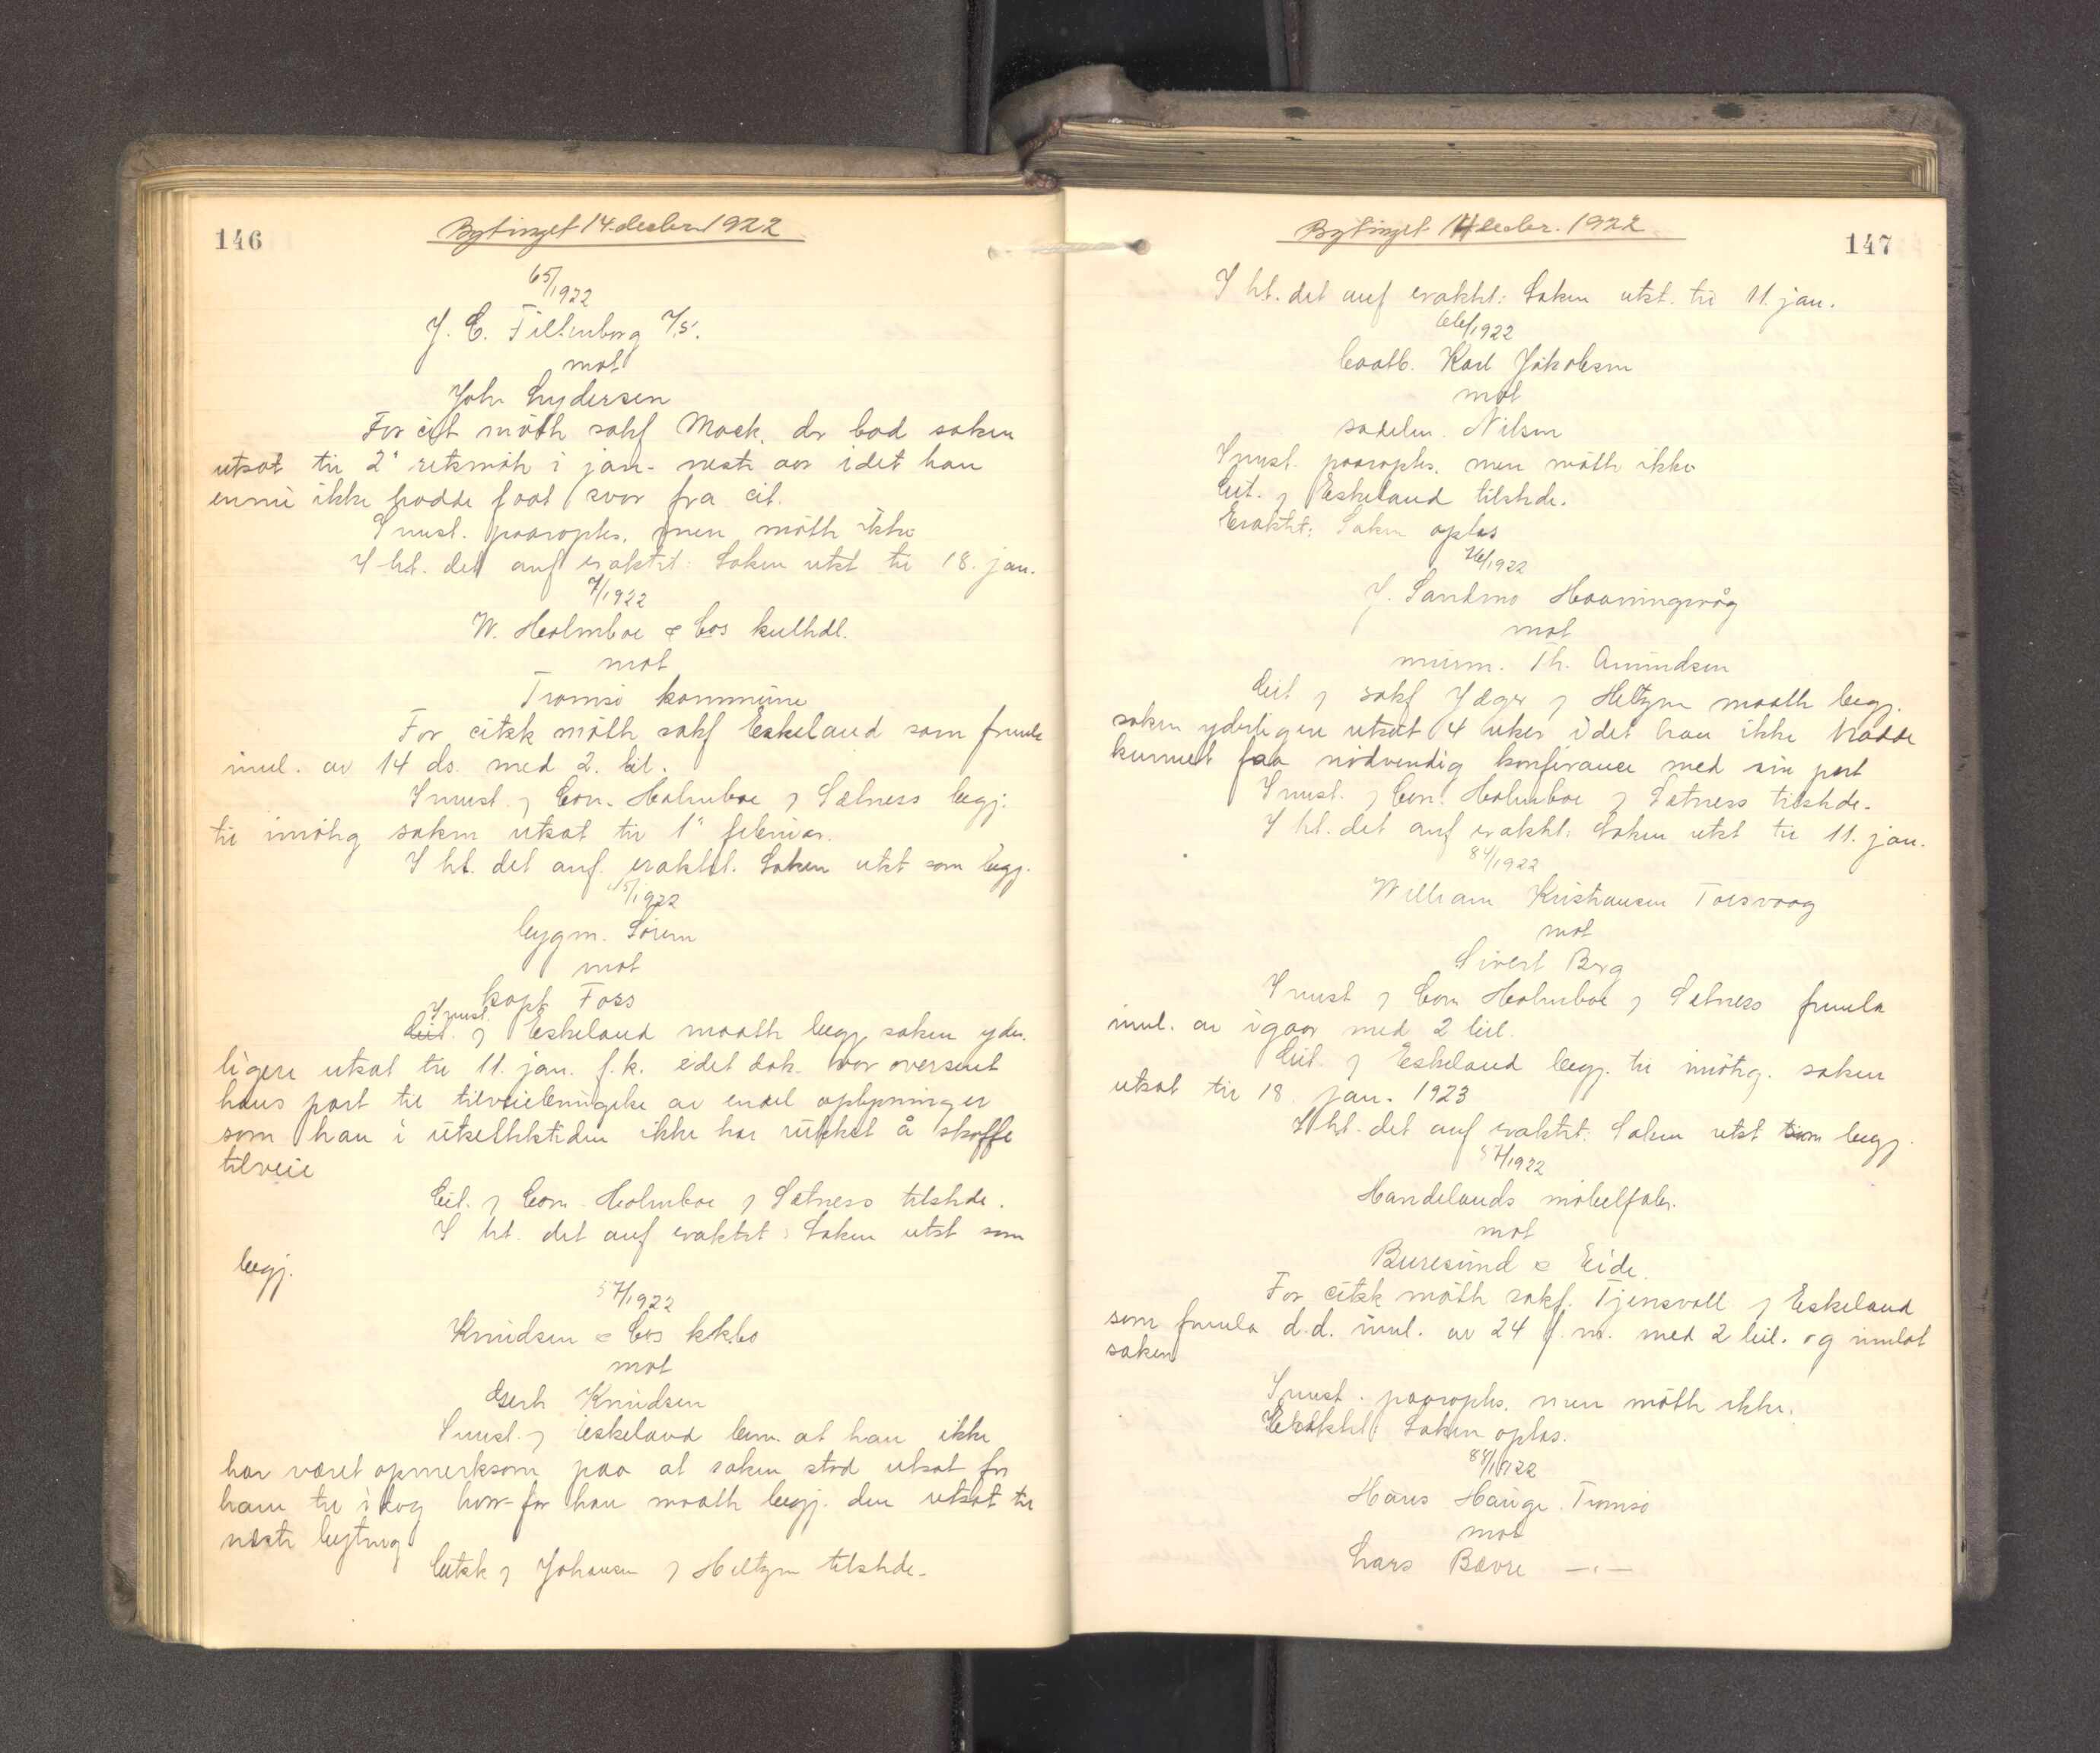 146
Bytinget 14. decbr 1922
65/1922
J. C. Tillenborg A/S.
mot
Joh. Lydersen
For cit mötte sakf Mack, der bad saken
utsat til 2' retsmöte i jan. neste aar idet han
ennu ikke hadde faat svar fra cit.
Innst. paaroptes, men mötte ikke
I ht. det anf eraktet: Saken utst til 18. jan.
7/1922
W. Holmboe & Cos kulhdl.
mot
Tromsö kommune
For citsk mötte sakf Eskeland som freml
innl. av 14 ds. med 2. bil.
Innst. v Con. Holmboe v Sætness begj.
til imötg saken utsat til 1' februar.
I ht. det anf. eraktet. Saken utst som begj.
15/1922
bygm. Sörem
mot
kapt Foss
Innst.
Cit. v Eskeland maatte begj saken yder-
ligere utsat til 11. jan. f.k. idet dok. var oversent
hans part til tilveiebringelse av endel oplysninger
som han i utsettelsestiden ikke har rukket å skaffe
tilveie
Cit. v Con. Holmboe v Sætness tilstede.
I ht. det anf eraktet: Saken utst som
begj.
57/1922
Knudsen & Cos kkbo
mot
Gerh Knudsen
Innst. v Eskeland bem. at han ikke
har været opmerksom paa at saken stod utsat for
ham til idag hvor-for han maatte begj. den utsat til
næste byting
Citsk v Johansen v Heltzen tilstede.
Bytinget 14 decbr. 1922
147
I ht. det anf eraktet: Saken utst. til 11. jan.
66/1922
Karl Jakobsen
mot
sadelm. Nilsen
Innst. paaroptes, men mötte ikke
Cit. v Eskeland tilstede.
Eraktet: Saken optas
76/1922
J. Sandmo Honningsvåg
mot
murm. Th. Amundsen
Cit v sakf Jæger v Heltzen maatte begj.
saken yderligere utsat 4 uker idet han ikke hadde
kunnet faa nödvendig konferance med sin part
Innst. v Con. Holmboe v Sætness tilstede.
I ht. det anf eraktet: Saken utst til 11. jan.
84/1922
William Kristiansen Torsvaag
mot
Sivert Berg
Innst v Con Holmboe v Sætness fremla
innl. av igaar med 2 bil.
Cit. v Eskeland begj. til imötg. saken
utsat til 18. jan. 1923
I ht. det anf eraktet: Saken utst som begj.
57/1922
Handelands möbelfabr.
mot
Buresund & Eide.
For citsk mötte sakf. Tjensvoll v Eskeland
som fremla d.d. innl. av 24 f.m. med 2 bil. og innlot
saken
Innst. paaroptes, men mötte ikke.
Eraktet: Saken optas.
88/1922
Hans Hauge. Tromsö
mot
Lars Bævre —"—